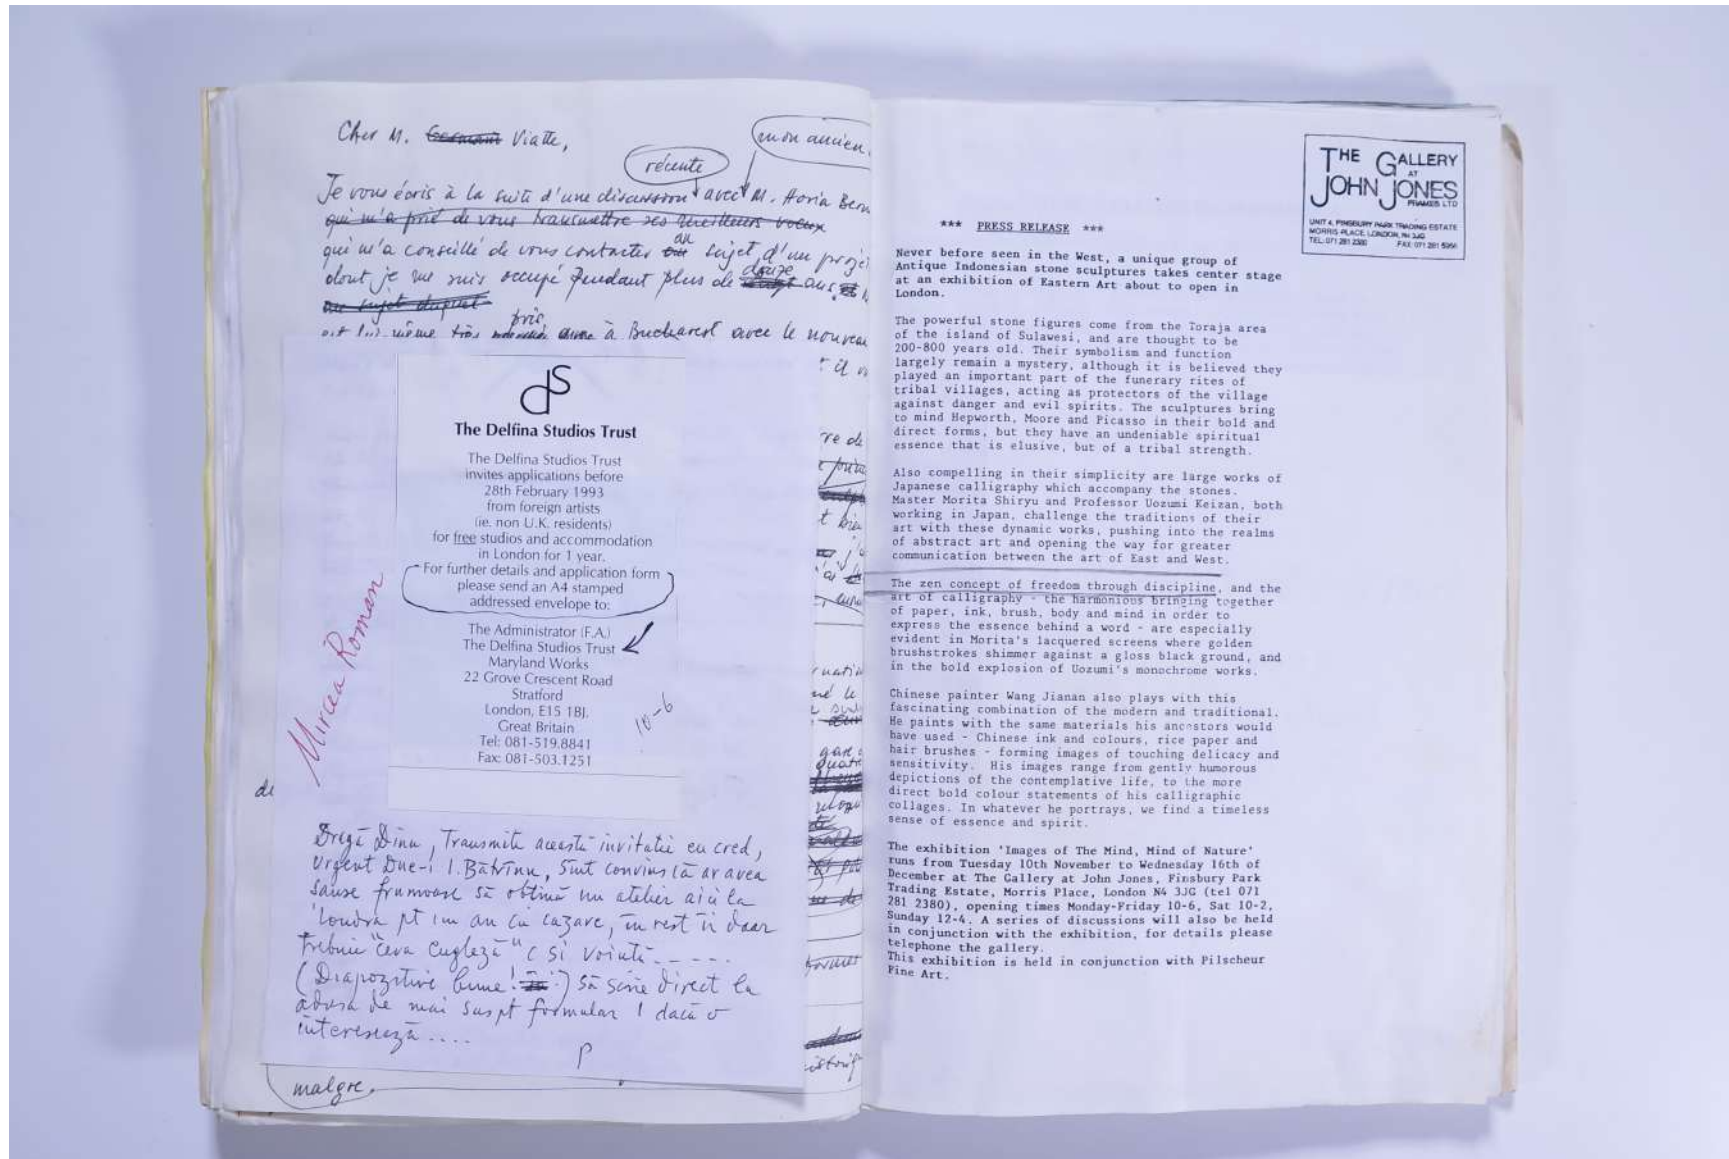 Cher M. Viatte,
récente
mon ancien
Je vous écris à la suite d'une discussion avec M. Horia Bern
qui m'a prié de vous transmettre ses meilleurs voeux
qui m'a conseillé de vous contacter au sujet d'un proje
dont je me suis occupé pendant plus de douze ans
au sujet duquel
pris
à Bucharest avec le nouveau
dS
The Delfina Studios Trust
The Delfina Studios Trust
invites applications before
28th February 1993
from foreign artists
(ie. non U.K. residents)
for free studios and accommodation
in London for 1 year.
For further details and application form
please send an A4 stamped
addressed envelope to:
The Administrator (F.A.)
The Delfina Studios Trust
Maryland Works
22 Grove Crescent Road
Stratford
London, E15 1BJ.
Great Britain
Tel: 081-519.8841
Fax: 081-503.1251
10-6
Mircea Roman
de
Dragă Dinu, Transmite această invitatie eu cred,
urgent Dne-i I. Bătrînu, sînt convins că ar avea
sanse frumoase să obtină un atelier aici la
Londra pt un an cu cazare, în rest îi doar
trebuie "ceva Engleză" si vointă
(Diapozitive bune! ) să scrie direct la
adresa de mai sus pt formular ! dacă o
interesează ....
P
malgre
THE GALLERY
AT
JOHN JONES
FRAMES LTD
UNIT 4, FINSBURY PARK TRADING ESTATE
MORRIS PLACE, LONDON, N4 3JG
TEL: 071 281 2380 FAX: 071 281 5956
*** PRESS RELEASE ***
Never before seen in the West, a unique group of
Antique Indonesian stone sculptures takes center stage
at an exhibition of Eastern Art about to open in
London.
The powerful stone figures come from the Toraja area
of the island of Sulawesi, and are thought to be
200-800 years old. Their symbolism and function
largely remain a mystery, although it is believed they
played an important part of the funerary rites of
tribal villages, acting as protectors of the village
against danger and evil spirits. The sculptures bring
to mind Hepworth, Moore and Picasso in their bold and
direct forms, but they have an undeniable spiritual
essence that is elusive, but of a tribal strength.
Also compelling in their simplicity are large works of
Japanese calligraphy which accompany the stones.
Master Morita Shiryu and Professor Uozumi Keizan, both
working in Japan, challenge the traditions of their
art with these dynamic works, pushing into the realms
of abstract art and opening the way for greater
communication between the art of East and West.
The zen concept of freedom through discipline, and the
art of calligraphy - the harmonious bringing together
of paper, ink, brush, body and mind in order to
express the essence behind a word - are especially
evident in Morita's lacquered screens where golden
brushstrokes shimmer against a gloss black ground, and
in the bold explosion of Uozumi's monochrome works.
Chinese painter Wang Jianan also plays with this
fascinating combination of the modern and traditional.
He paints with the same materials his ancestors would
have used - Chinese ink and colours, rice paper and
hair brushes - forming images of touching delicacy and
sensitivity. His images range from gently humorous
depictions of the contemplative life, to the more
direct bold colour statements of his calligraphic
collages. In whatever he portrays, we find a timeless
sense of essence and spirit.
The exhibition 'Images of The Mind, Mind of Nature'
runs from Tuesday 10th November to Wednesday 16th of
December at The Gallery at John Jones, Finsbury Park
Trading Estate, Morris Place, London N4 3JG (tel 071
281 2380), opening times Monday-Friday 10-6, Sat 10-2,
Sunday 12-4. A series of discussions will also be held
in conjunction with the exhibition, for details please
telephone the gallery.
This exhibition is held in conjunction with Pilscheur
Fine Art.